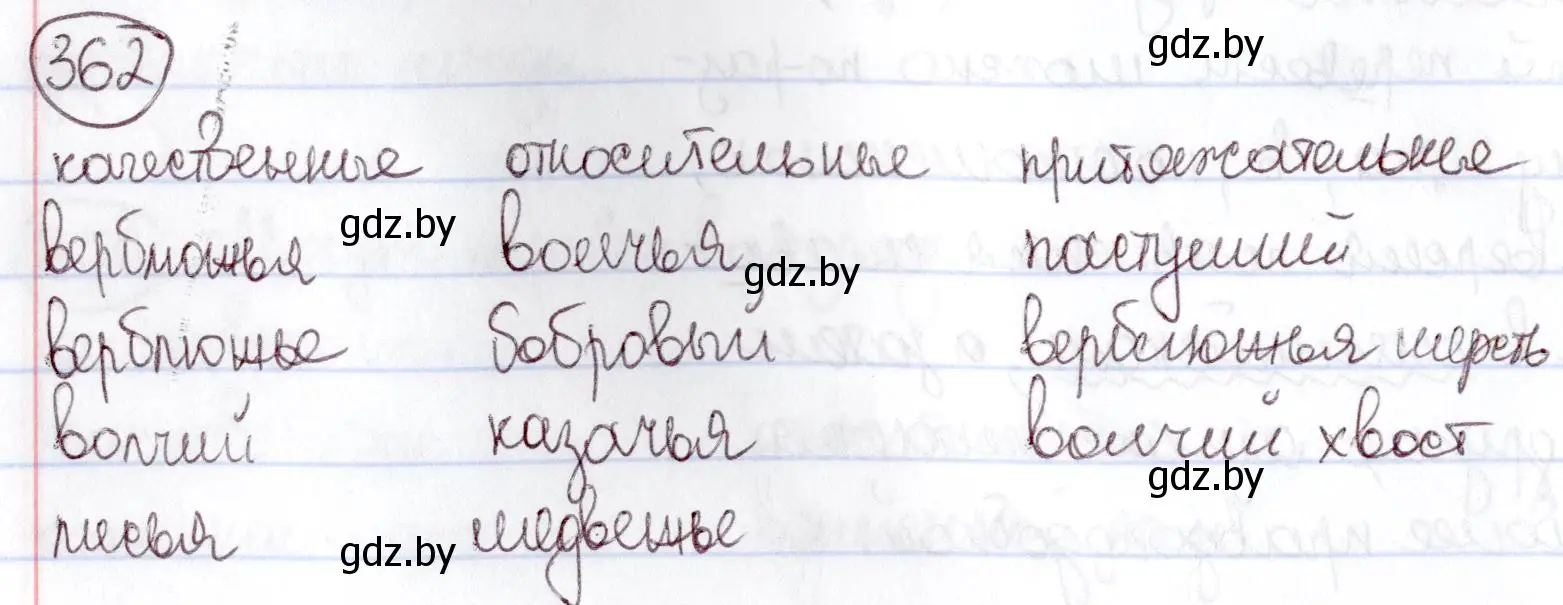 362 gdz.by
качественные относительные притяжательные
верблюжья gdz.by волчья gdz.by пастуший
верблюжье бобровый верблюжья шерсть
волчий казачья волчий хвост
gdz.by
лисья gdz.by медвежье